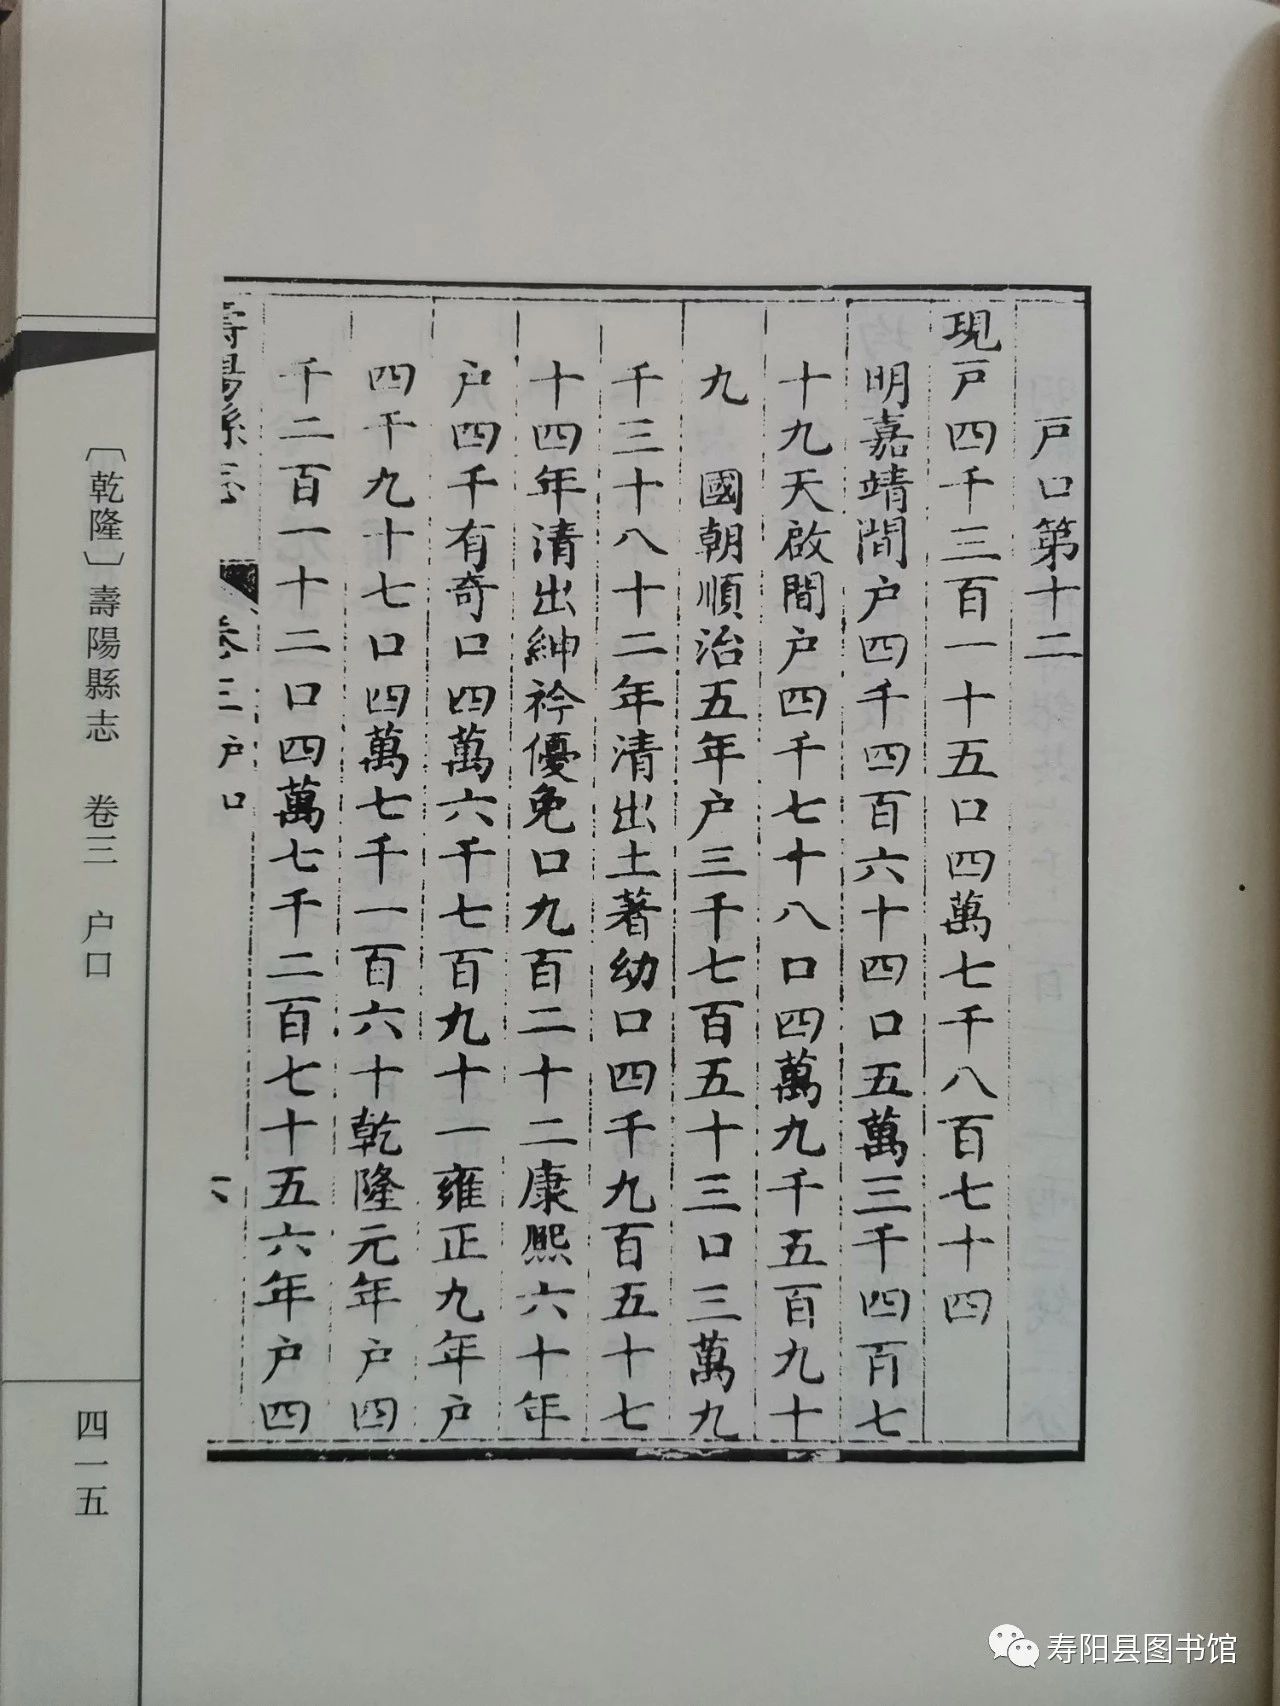 戶口第十二
現戸四千三百一十五口四萬七千八百七十四
明嘉靖間户四千四百六十四口五萬三千四百七
十九天啟間户四千七十八口四萬九千五百九十
九　國朝順治五年户三千七百五十三口三萬九
千三十八十二年清出土著幼口四千九百五十七
十四年清出紳衿優免口九百二十二康熙六十年
户四千有奇口四萬六千七百九十一雍正九年户
四千九十七口四萬七千一百六十乾隆元年户四
千二百一十二口四萬七千二百七十五六年户四
壽陽縣志　卷三户口　六
〔乾隆〕壽陽縣志　卷三　户口
四一五
寿阳县图书馆